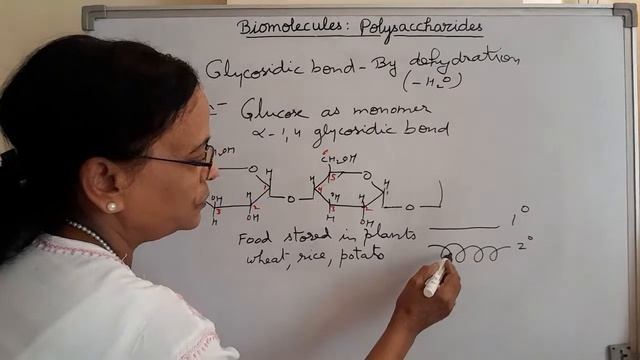 Biomolecules: Polysaccharides
Glycosidic bond - By dehydration
(-H₂O)
Glucose as monomer
α-1,4 glycosidic bond
OH
6
CH₂OH
O
H
1
O
H
4
5
O
H
1
O
OH
3
H
H
2
OH
OH
3
H
H
2
OH
Food stored in plants
wheat, rice, potato
1°
2°